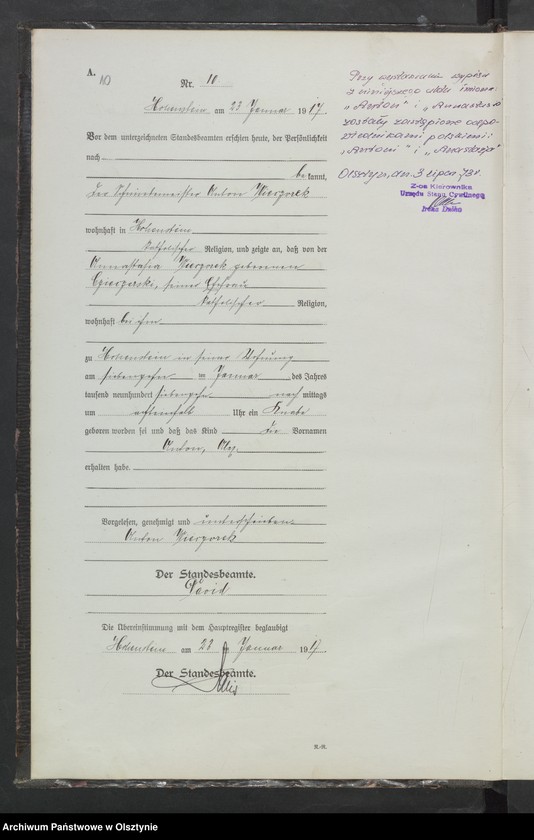 A.
10
Nr. 10
Hohenstein am 22 Januar 1917.
Vor dem unterzeichneten Standesbeamten erschien heute, der Persönlichkeit
nach
bekannt,
der Schneidermeister Anton
wohnhaft in Hohenstein
katholischer Religion, und zeigte an, daß von der
Annastasia geborenen
seiner Ehefrau
katholischer Religion,
wohnhaft bei ihm
zu Hohenstein in seiner Wohnung
am siebenzehn im Januar des Jahres
tausend neunhundert siebzehn nach mittags
um Uhr ein Knabe
geboren worden sei und daß das Kind die Vornamen
Anton,
erhalten habe.
Vorgelesen, genehmigt und unterschrieben
Anton
Der Standesbeamte.
David
Die Übereinstimmung mit dem Hauptregister beglaubigt
Hohenstein am 22 Januar 1917.
Der Standesbeamte.
R.-R.
Przy wydawaniu wypisu
z niniejszego aktu imiona
"Anton" i "Annastasia"
zostały zastąpione odpo-
wiednikami polskimi:
"Antoni" i "Anastazja"
Olsztyn, dn. 3 lipca
Z-ca Kierownika
Urzędu Stanu Cywilnego
Archiwum Państwowe w Olsztynie